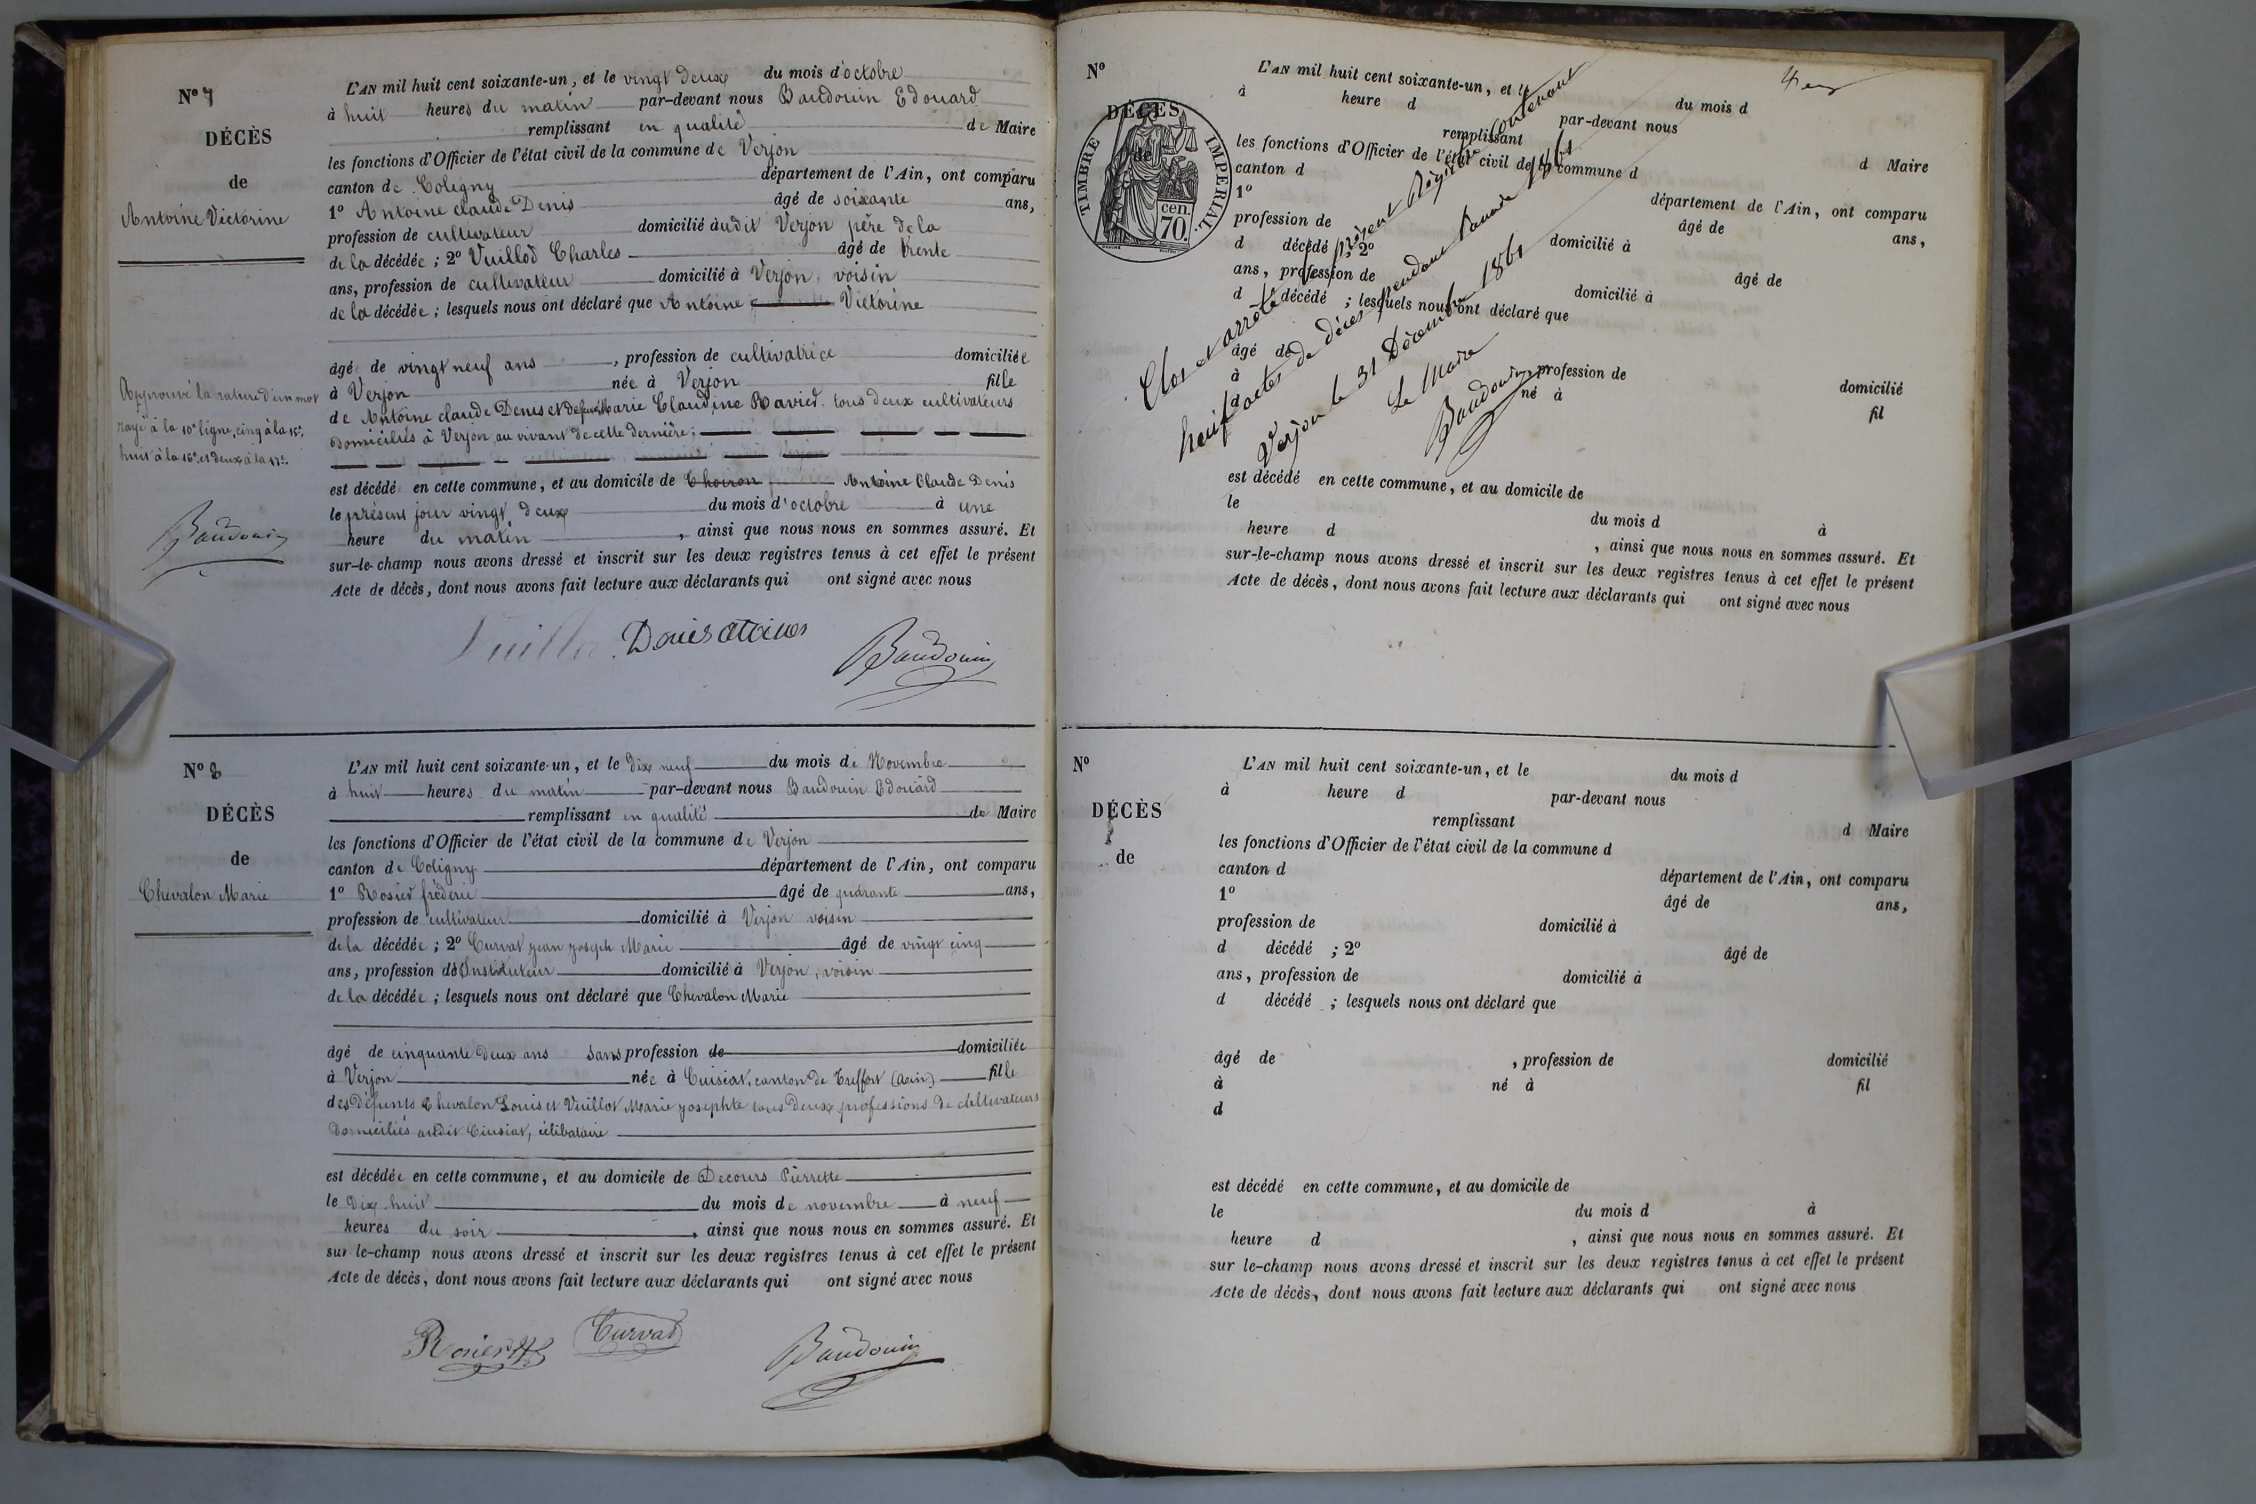 N° 7
DÉCÈS
de
Antoine Victorine
Approuvé la rature d'un mot
rayé à la 10e ligne, cinq à la 15e,
huit à la 16e et deux à la 17e.
Baudouin
L'AN mil huit cent soixante-un, et le vingt deux du mois d'octobre
à huit heures du matin par-devant nous Baudouin Edouard
remplissant en qualité de Maire
les fonctions d'Officier de l'état civil de la commune de Verjon
canton de Coligny département de l'Ain, ont comparu
1° Antoine claude Denis âgé de soixante ans,
profession de cultivateur domicilié audit Verjon père de la
de la décédée ; 2° Vuillod Charles âgé de trente
ans, profession de cultivateur domicilié à Verjon, voisin
de la décédée ; lesquels nous ont déclaré que Antoine Victorine
âgé de vingt neuf ans , profession de cultivatrice domiciliée
à Verjon née à Verjon fille
de Antoine claude Denis et de feue Marie Claudine Ravier tous deux cultivateurs
domiciliés à Verjon au vivant de cette dernière ;
est décédé en cette commune, et au domicile de Choiron Antoine Claude Denis
le présent jour vingt deux du mois d'octobre à une
heure du matin , ainsi que nous nous en sommes assuré. Et
sur-le-champ nous avons dressé et inscrit sur les deux registres tenus à cet effet le présent
Acte de décès, dont nous avons fait lecture aux déclarants qui ont signé avec nous
Vuillod Denis Baudouin
N° 8
DÉCÈS
de
Chevalon Marie
L'AN mil huit cent soixante-un, et le dix neuf du mois de Novembre
à huit heures du matin par-devant nous Baudouin Edouard
remplissant en qualité de Maire
les fonctions d'Officier de l'état civil de la commune de Verjon
canton de Coligny département de l'Ain, ont comparu
1° Rosier fréderic âgé de quarante ans,
profession de cultivateur domicilié à Verjon voisin
de la décédée ; 2° Curvat jean joseph Marie âgé de vingt cinq
ans, profession d'Instituteur domicilié à Verjon, voisin
de la décédée ; lesquels nous ont déclaré que Chevalon Marie
âgé de cinquante deux ans sans profession de domiciliée
à Verjon née à Cuisiat, canton de Treffort (Ain) fille
des défunts Chevalon Louis et Vuillot Marie josephte tous deux professions de cultivateurs
domiciliés audit Cuisiat, célibataire
est décédée en cette commune, et au domicile de Decours Pierrette
le dix huit du mois de novembre à neuf
heures du soir , ainsi que nous nous en sommes assuré. Et
sur le-champ nous avons dressé et inscrit sur les deux registres tenus à cet effet le présent
Acte de décès, dont nous avons fait lecture aux déclarants qui ont signé avec nous
Rosier Curvat Baudouin
N°
DÉCÈS
de
TIMBRE IMPERIAL.
cen.
70.
L'AN mil huit cent soixante-un, et le du mois d
à heure d par-devant nous
remplissant d Maire
les fonctions d'Officier de l'état civil de la commune d
canton d département de l'Ain, ont comparu
1° âgé de ans,
profession de domicilié à
d décédé ; 2° âgé de
ans, profession de domicilié à
d décédé ; lesquels nous ont déclaré que
âgé de , profession de domicilié
à né à fil
d
est décédé en cette commune, et au domicile de
le du mois d à
heure d , ainsi que nous nous en sommes assuré. Et
sur-le-champ nous avons dressé et inscrit sur les deux registres tenus à cet effet le présent
Acte de décès, dont nous avons fait lecture aux déclarants qui ont signé avec nous
Clos et arrêté le présent Registre contenant
huit actes de décès pendant l'année 1861
Verjon le 31 Décembre 1861
Le Maire
Baudouin
N°
DÉCÈS
de
L'AN mil huit cent soixante-un, et le du mois d
à heure d par-devant nous
remplissant d Maire
les fonctions d'Officier de l'état civil de la commune d
canton d département de l'Ain, ont comparu
1° âgé de ans,
profession de domicilié à
d décédé ; 2° âgé de
ans, profession de domicilié à
d décédé ; lesquels nous ont déclaré que
âgé de , profession de domicilié
à né à fil
d
est décédé en cette commune, et au domicile de
le du mois d à
heure d , ainsi que nous nous en sommes assuré. Et
sur le-champ nous avons dressé et inscrit sur les deux registres tenus à cet effet le présent
Acte de décès, dont nous avons fait lecture aux déclarants qui ont signé avec nous